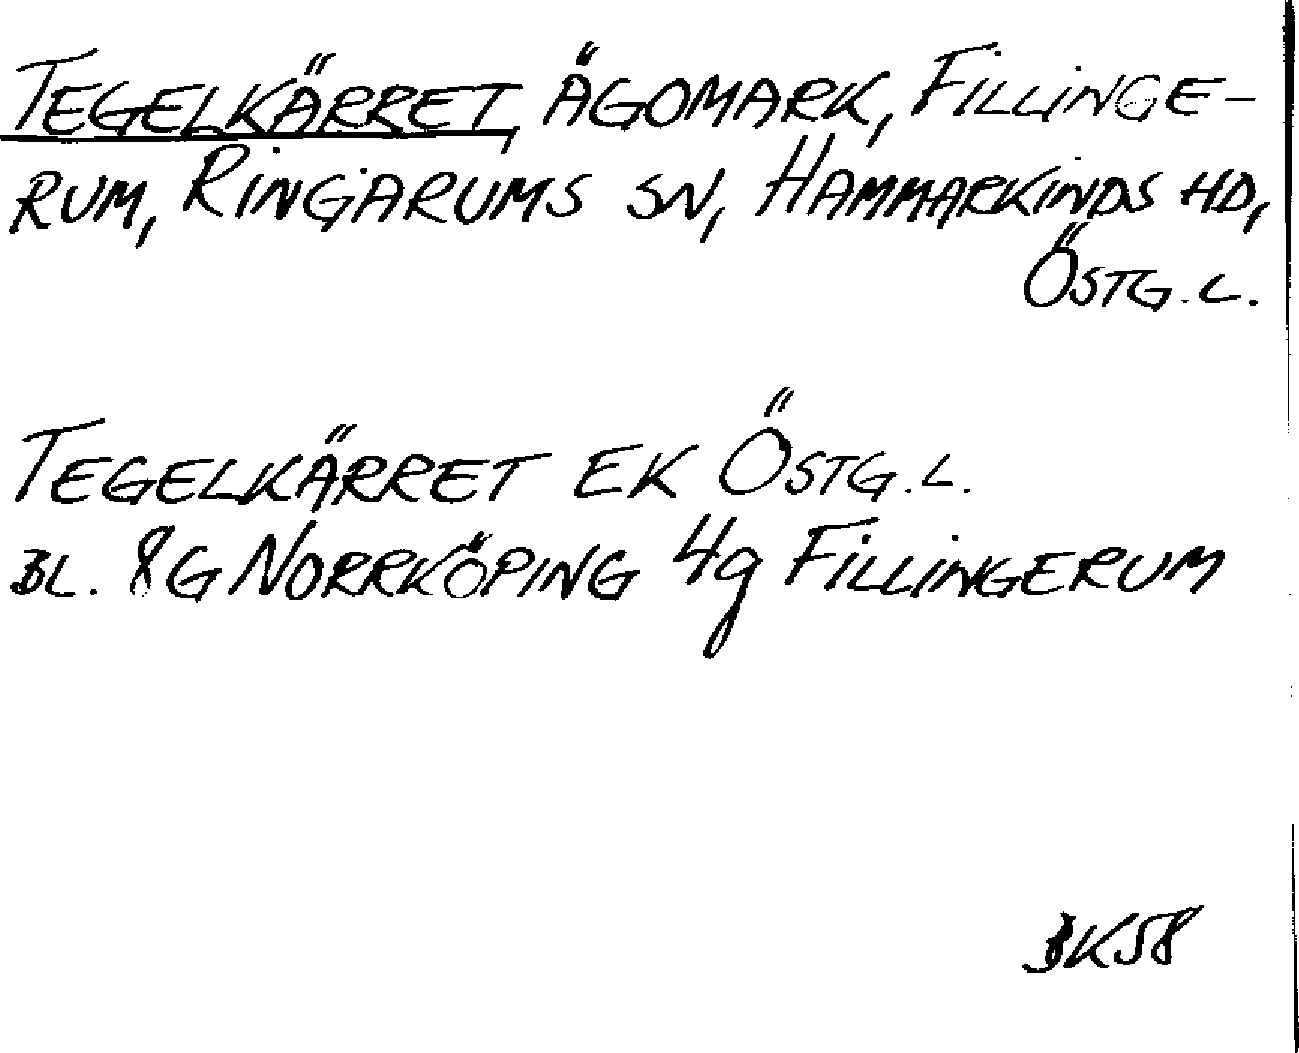 TEGELKÄRRET, ÄGOMARK, FILLINGE-
RUM, RINGARUMS SN, HAMMARKINDS HD,
ÖSTG. L.
TEGELKÄRRET EK ÖSTG. L.
BL. 8G NORRKÖPING 4g FILLINGERUM
BK58